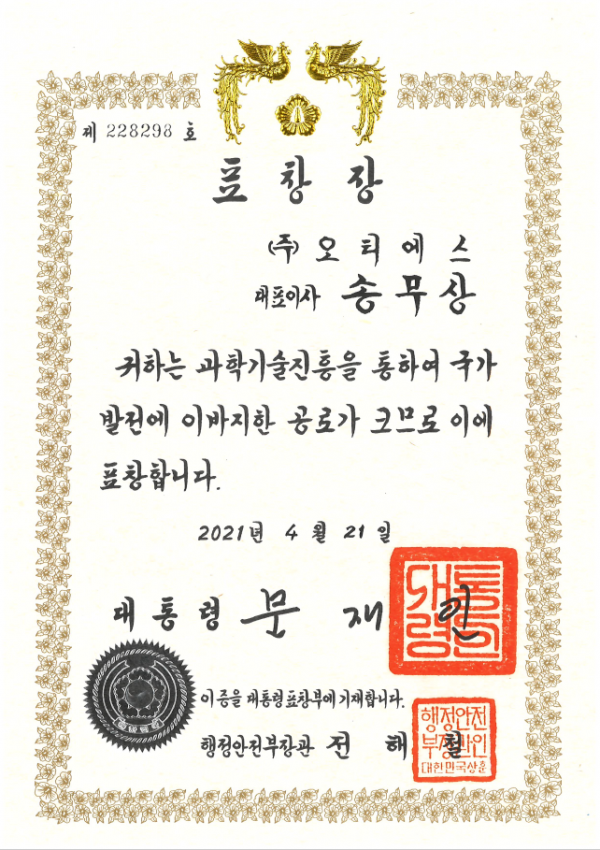 제 228298 호
표창장
(주) 오티에스
대표이사 송무상
귀하는 과학기술진흥을 통하여 국가
발전에 이바지한 공로가 크므로 이에
표창합니다.
2021년 4월 21일
대통령 문재인
대통령의인
이 증을 대통령표창부에 기재합니다.
행정안전부장관 전해철
행정안전
부장관인
대한민국상훈